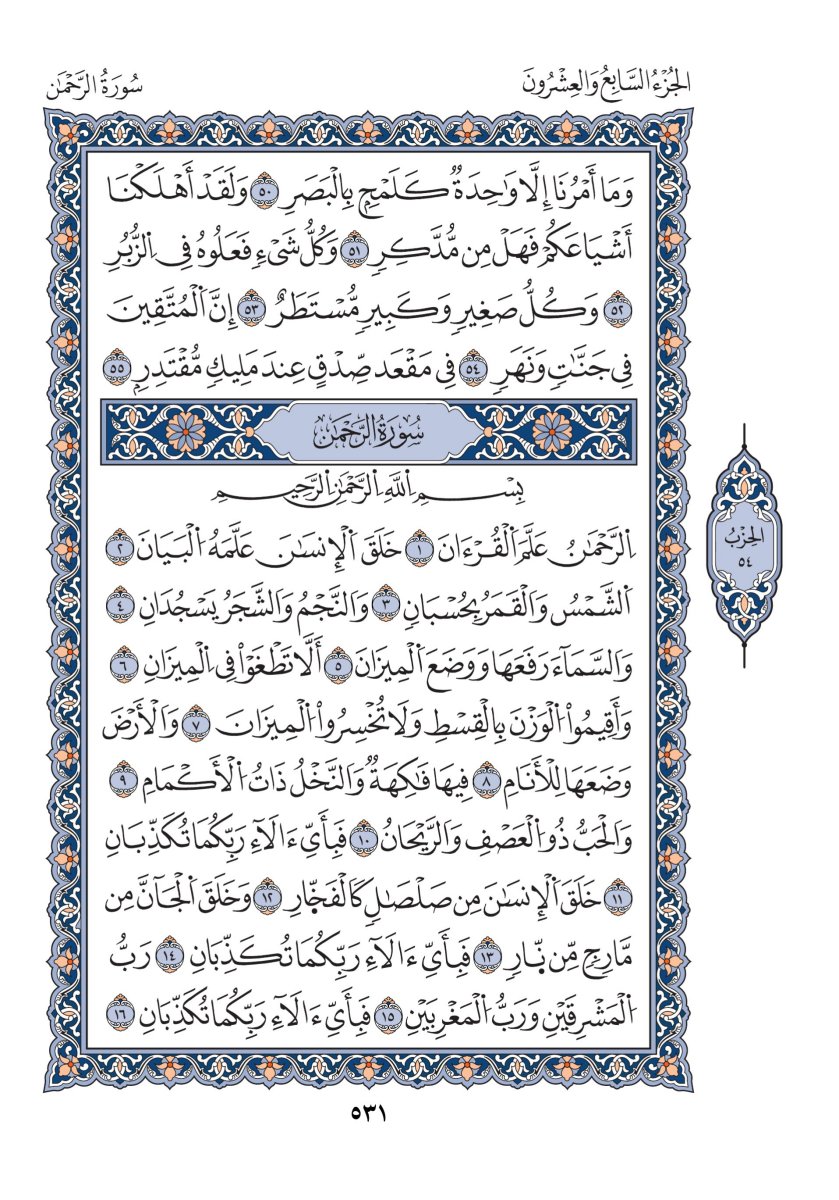 الجُزْءُ السَّابِعُ وَالعِشْرُونَ
سُورَةُ الرَّحْمَٰن
وَمَا أَمْرُنَا إِلَّا وَٰحِدَةٌ كَلَمْحِۭ بِالْبَصَرِ ٥٠ وَلَقَدْ أَهْلَكْنَا
أَشْيَاعَكُمْ فَهَلْ مِن مُّدَّكِرٍ ٥١ وَكُلُّ شَيْءٍ فَعَلُوهُ فِي اِ۬لزُّبُرِ
٥٢ وَكُلُّ صَغِيرٍ وَكَبِيرٍ مُّسْتَطَرٌ ٥٣ إِنَّ اَ۬لْمُتَّقِينَ
فِي جَنَّٰتٍ وَنَهَرٍ ٥٤ فِي مَقْعَدِ صِدْقٍ عِندَ مَلِيكٍ مُّقْتَدِرٍ ٥٥
سُورَةُ الرَّحْمَٰن
بِسْمِ اِ۬للَّهِ اِ۬لرَّحْمَٰنِ اِ۬لرَّحِيمِ
اِ۬لرَّحْمَٰنُ عَلَّمَ اَ۬لْقُرْءَانَ ١ خَلَقَ اَ۬لْإِنسَٰنَ عَلَّمَهُ اُ۬لْبَيَانَ ٢
اَ۬لشَّمْسُ وَالْقَمَرُ بِحُسْبَانٍ ٣ وَالنَّجْمُ وَالشَّجَرُ يَسْجُدَانِ ٤
وَالسَّمَآءَ رَفَعَهَا وَوَضَعَ اَ۬لْمِيزَانَ ٥ أَلَّا تَطْغَوْاْ فِي اِ۬لْمِيزَانِ ٦
وَأَقِيمُواْ اُ۬لْوَزْنَ بِالْقِسْطِ وَلَا تُخْسِرُواْ اُ۬لْمِيزَانَ ٧ وَالْأَرْضَ
وَضَعَهَا لِلْأَنَامِ ٨ فِيهَا فَٰكِهَةٌ وَالنَّخْلُ ذَاتُ اُ۬لْأَكْمَامِ ٩
وَالْحَبُّ ذُو اُ۬لْعَصْفِ وَالرَّيْحَانُ ١٠ فَبِأَيِّ ءَالَآءِ رَبِّكُمَا تُكَذِّبَانِ
١١ خَلَقَ اَ۬لْإِنسَٰنَ مِن صَلْصَٰلٍ كَالْفَخّ۪ارِ ١٢ وَخَلَقَ اَ۬لْجَآنَّ مِن
مَّارِجٍ مِّن نّ۪ارٍ ١٣ فَبِأَيِّ ءَالَآءِ رَبِّكُمَا تُكَذِّبَانِ ١٤ رَبُّ
اُ۬لْمَشْرِقَيْنِ وَرَبُّ اُ۬لْمَغْرِبَيْنِ ١٥ فَبِأَيِّ ءَالَآءِ رَبِّكُمَا تُكَذِّبَانِ ١٦
الحِزْبُ
٥٤
٥٣١